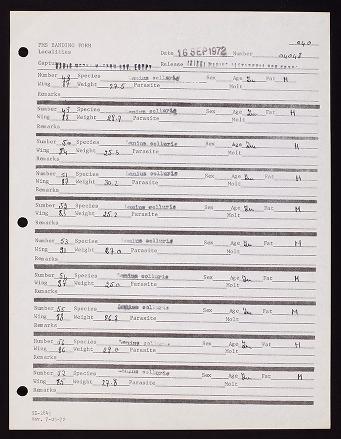 040
PMS BANDING FORM
Localities Date 16 SEP 1972 Number 04048
Capture Release
Number 48 Species Lanius collurio Sex Age Im Fat M
Wing 87 Weight 27.5 Parasite Molt
Remarks
Number 49 Species Lanius collurio Sex Age Im Fat M
Wing Weight Parasite Molt
Remarks
Number 50 Species Lanius collurio Sex Age Im Fat M
Wing Weight 25.5 Parasite Molt
Remarks
Number 51 Species Lanius collurio Sex Age Im Fat M
Wing 87 Weight 30.2 Parasite Molt
Remarks
Number 52 Species Lanius collurio Sex Age Im Fat M
Wing Weight 25.2 Parasite Molt
Remarks
Number 53 Species Lanius collurio Sex Age Im Fat M
Wing 91 Weight 27.0 Parasite Molt
Remarks
Number 54 Species Lanius collurio Sex Age Im Fat M
Wing 87 Weight 25.0 Parasite Molt
Remarks
Number 55 Species Lanius collurio Sex Age Im Fat M
Wing 88 Weight 26.8 Parasite Molt
Remarks
Number 56 Species Lanius collurio Sex Age Im Fat M
Wing 86 Weight 29.0 Parasite Molt
Remarks
Number 57 Species Lanius collurio Sex Age Im Fat M
Wing 85 Weight 27.8 Parasite Molt
Remarks